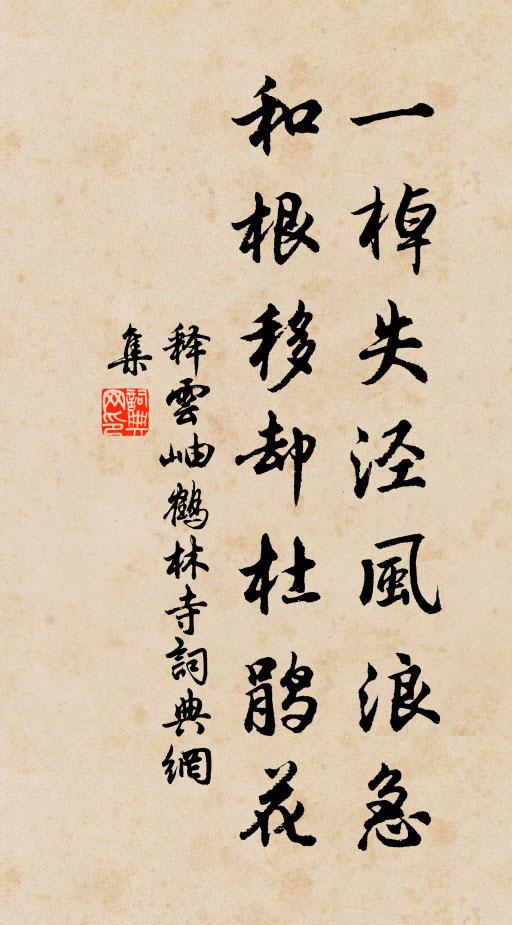 一棹失泾風浪急
和根移却杜鹃花
释雲岫鶴林寺詞典網
集
詞典网印